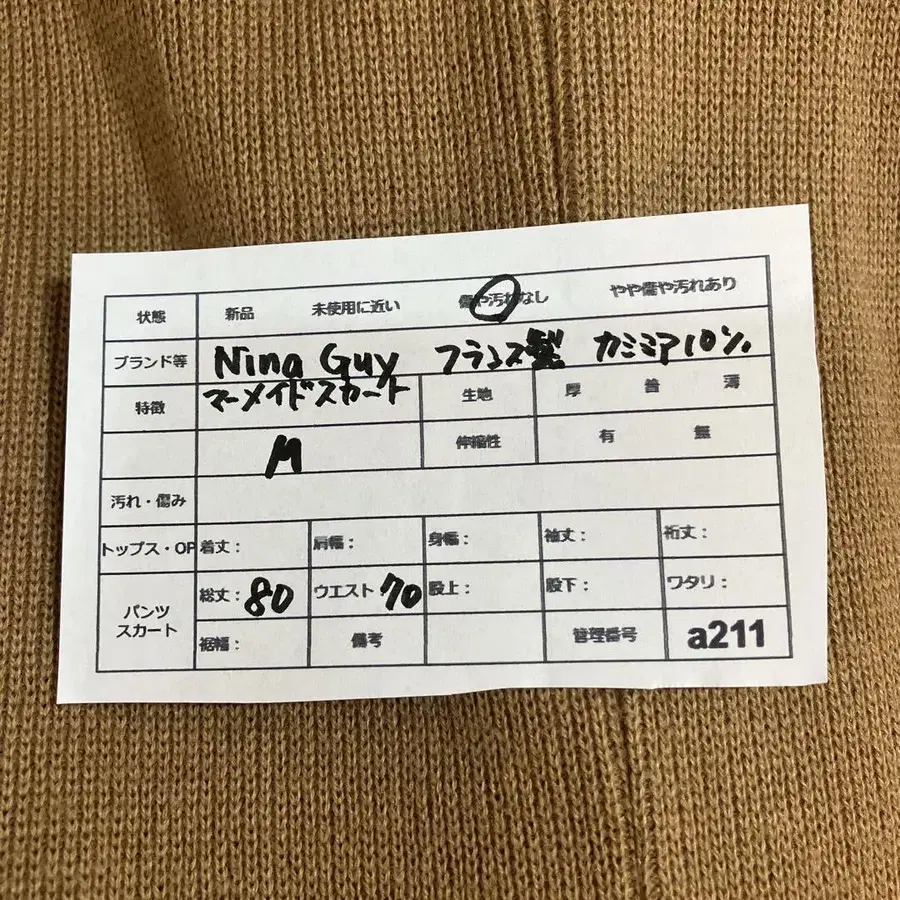 状態 新品 未使用に近い 傷や汚れなし やや傷や汚れあり
ブランド等 Nina Guy フランス製 カミミア10%
特徴 マーメイドスカート 生地 厚 普 薄
M 伸縮性 有 無
汚れ・傷み
トップス・OP 着丈： 肩幅： 身幅： 袖丈： 裄丈：
パンツ スカート 総丈：80 ウエスト 70 股上： 股下： ワタリ：
裾幅： 備考 管理番号 a211